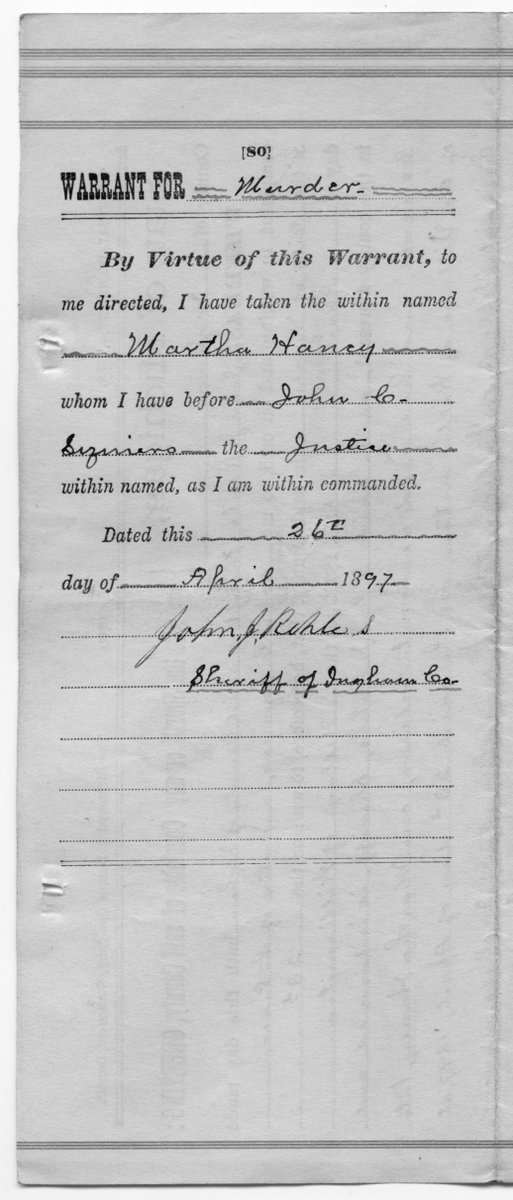 [80]
WARRANT FOR Murder
By Virtue of this Warrant, to
me directed, I have taken the within named
Martha Haney
whom I have before John C.
the Justice
within named, as I am within commanded.
Dated this 26th
day of April 1897
John J. Rehle s
Sheriff of Ingham Co.